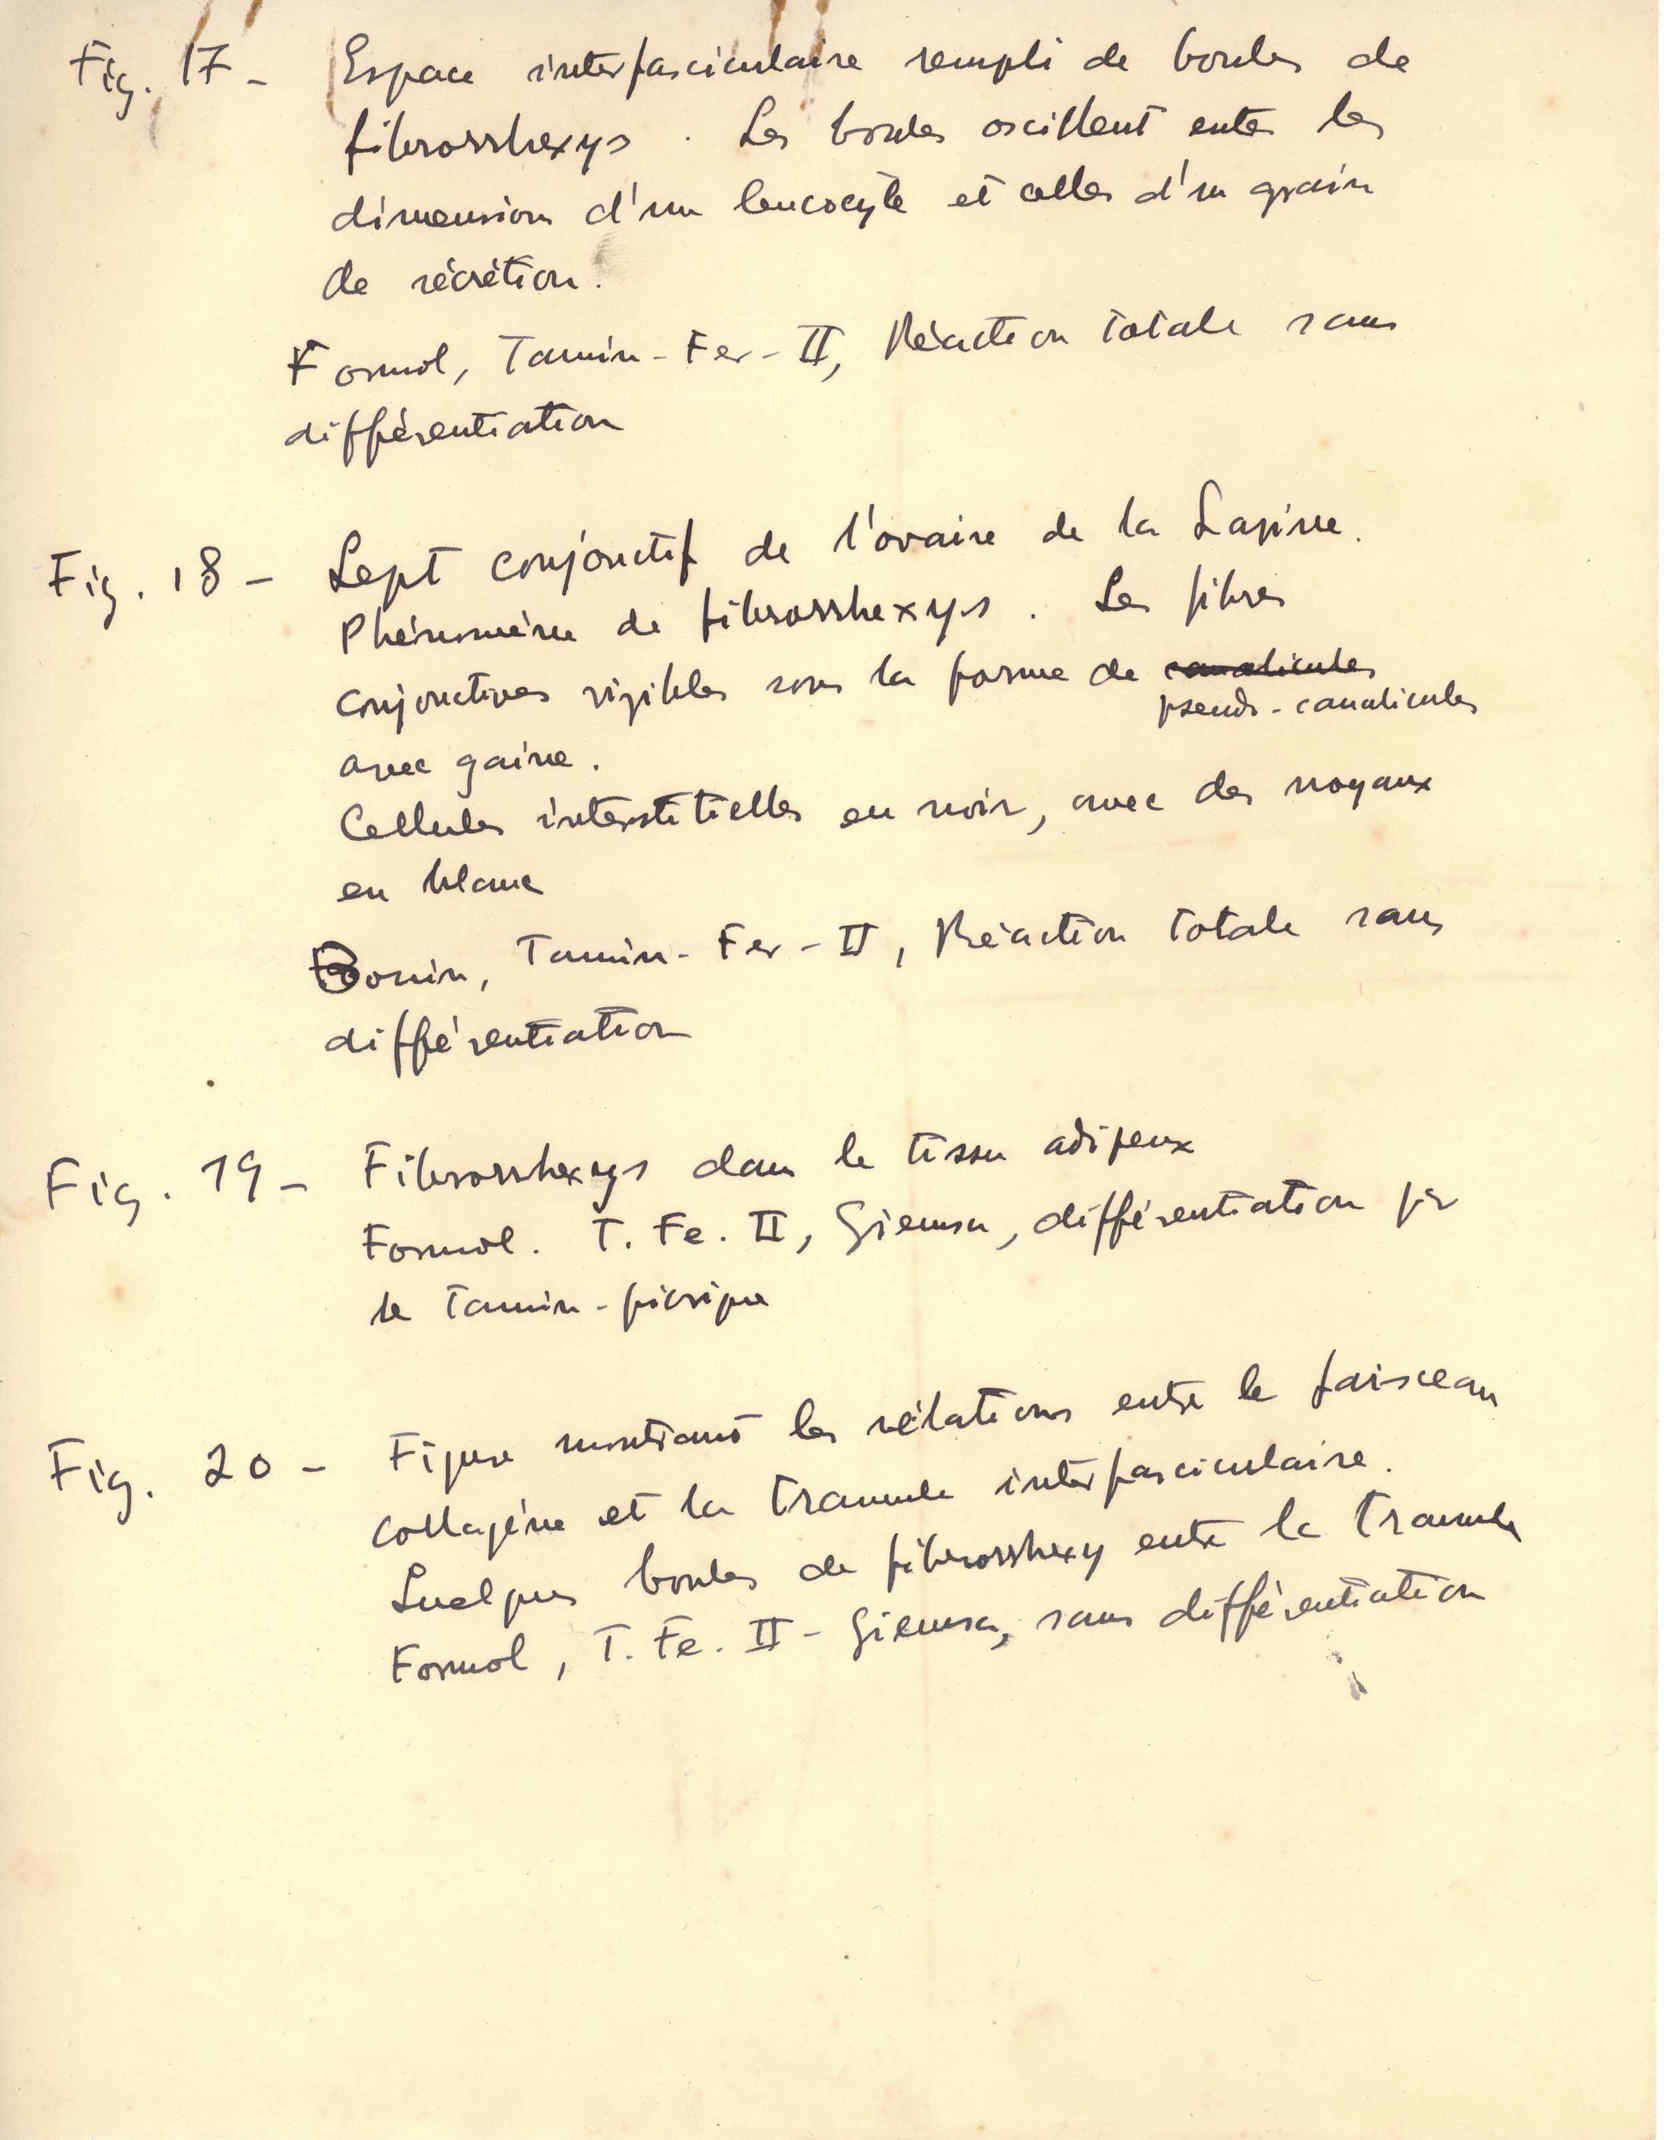 Fig. 17 - Espace interfasciculaire rempli de boules de
fibrorrhexys. Les boules oscillent entre les
dimensions d'un leucocyte et celles d'un grain
de sécrétion.
Formol, Tannin-Fer-II, Réaction totale sans
différentiation
Fig. 18 - Sept conjonctif de l'ovaire de la Lapine.
Phénomène de fibrorrhexys. Les fibres
conjonctives visibles sous la forme de canalicules
pseudo-canalicules
avec gaine.
Cellules interstitielles en noir, avec des noyaux
en blanc
Bouin, Tannin-Fer-II, Réaction totale sans
différentiation
Fig. 19 - Fibrorrhexys dans le tissu adipeux
Formol. T. Fe. II, Giemsa, différentiation par
le Tannin-picrique
Fig. 20 - Figure montrant les rélations entre le faisceau
collagène et la tramule interfasciculaire.
Quelques boules de fibrorrhexy entre la tramule
Formol, T. Fe. II - Giemsa, sans différentiation